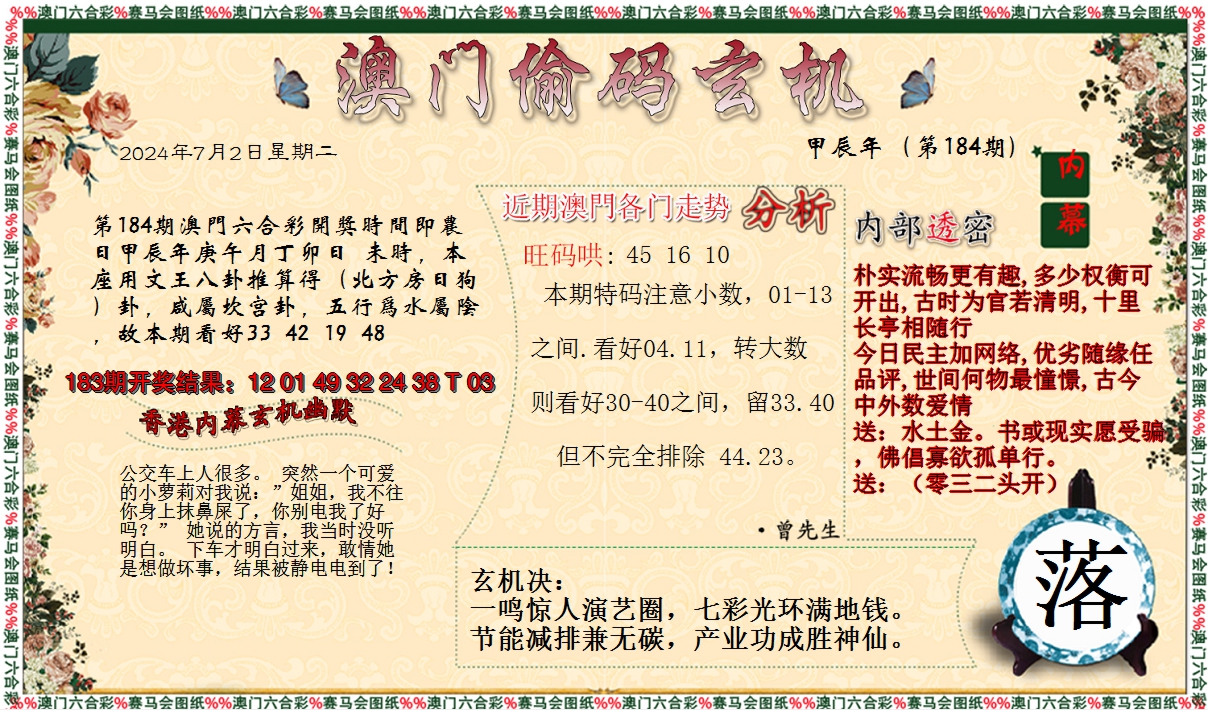 %%澳门六合彩%赛马会图纸%%澳门六合彩%赛马会图纸%%澳门六合彩%赛马会图纸%%澳门六合彩%赛马会图纸%%澳门六合彩%赛马会图纸%%澳门六合彩%赛马会图纸%%
澳门偷码玄机
2024年7月2日星期二
甲辰年 （第184期）
内幕
第184期澳門六合彩開獎時間即農
日甲辰年庚午月丁卯日 未時，本
座用文王八卦推算得（北方房日狗
）卦，咸屬坎宫卦，五行爲水屬陰
，故本期看好33 42 19 48
183期开奖结果：12 01 49 32 24 38 T 03
香港内幕玄机幽默
公交车上人很多。 突然一个可爱
的小萝莉对我说：”姐姐，我不往
你身上抹鼻屎了，你别电我了好
吗？” 她说的方言，我当时没听
明白。 下车才明白过来，敢情她
是想做坏事，结果被静电电到了！
近期澳門各门走势 分析
旺码哄: 45 16 10
本期特码注意小数，01-13
之间.看好04.11，转大数
则看好30-40之间，留33.40
但不完全排除 44.23。
·曾先生
内部透密
朴实流畅更有趣,多少权衡可
开出,古时为官若清明,十里
长亭相随行
今日民主加网络,优劣随缘任
品评,世间何物最憧憬,古今
中外数爱情
送：水土金。书或现实愿受骗
，佛倡寡欲孤单行。
送：（零三二头开）
玄机决：
一鸣惊人演艺圈，七彩光环满地钱。
节能减排兼无碳，产业功成胜神仙。
落
%%澳门六合彩%赛马会图纸%%澳门六合彩%赛马会图纸%%澳门六合彩%赛马会图纸%%澳门六合彩%赛马会图纸%%澳门六合彩%赛马会图纸%%澳门六合彩%赛马会图纸%%